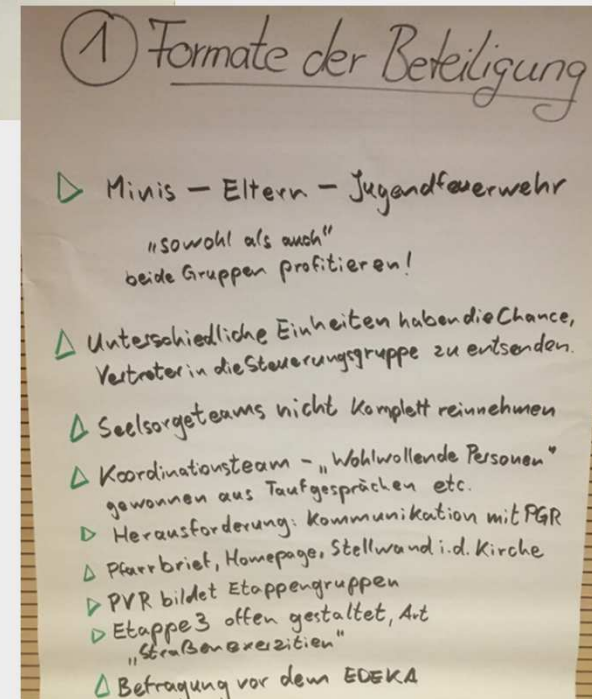 ① Formate der Beteiligung
▷ Minis – Eltern – Jugendfeuerwehr
„sowohl als auch"
beide Gruppen profitieren!
△ Unterschiedliche Einheiten haben die Chance,
Vertreter in die Steuerungsgruppe zu entsenden.
△ Seelsorgeteams nicht komplett reinnehmen
△ Koordinationsteam – „Wohlwollende Personen"
gewonnen aus Taufgesprächen etc.
▷ Herausforderung: Kommunikation mit PGR
△ Pfarrbrief, Homepage, Stellwand i.d. Kirche
▷ PVR bildet Etappengruppen
▷ Etappe 3 offen gestaltet, Art
„Straßenexerzitien"
△ Befragung vor dem EDEKA